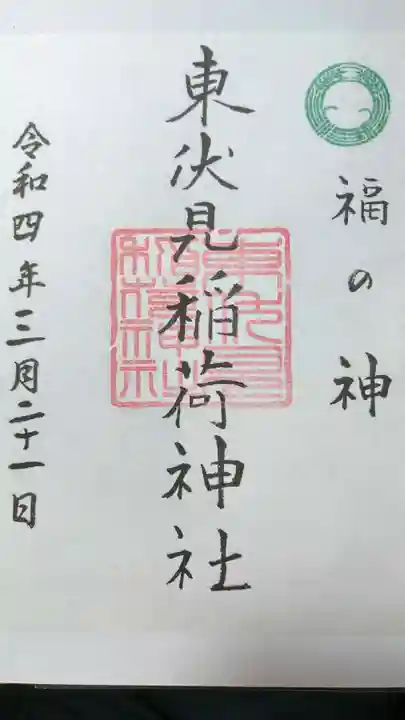 福の神
東伏見稲荷神社
令和四年三月二十一日